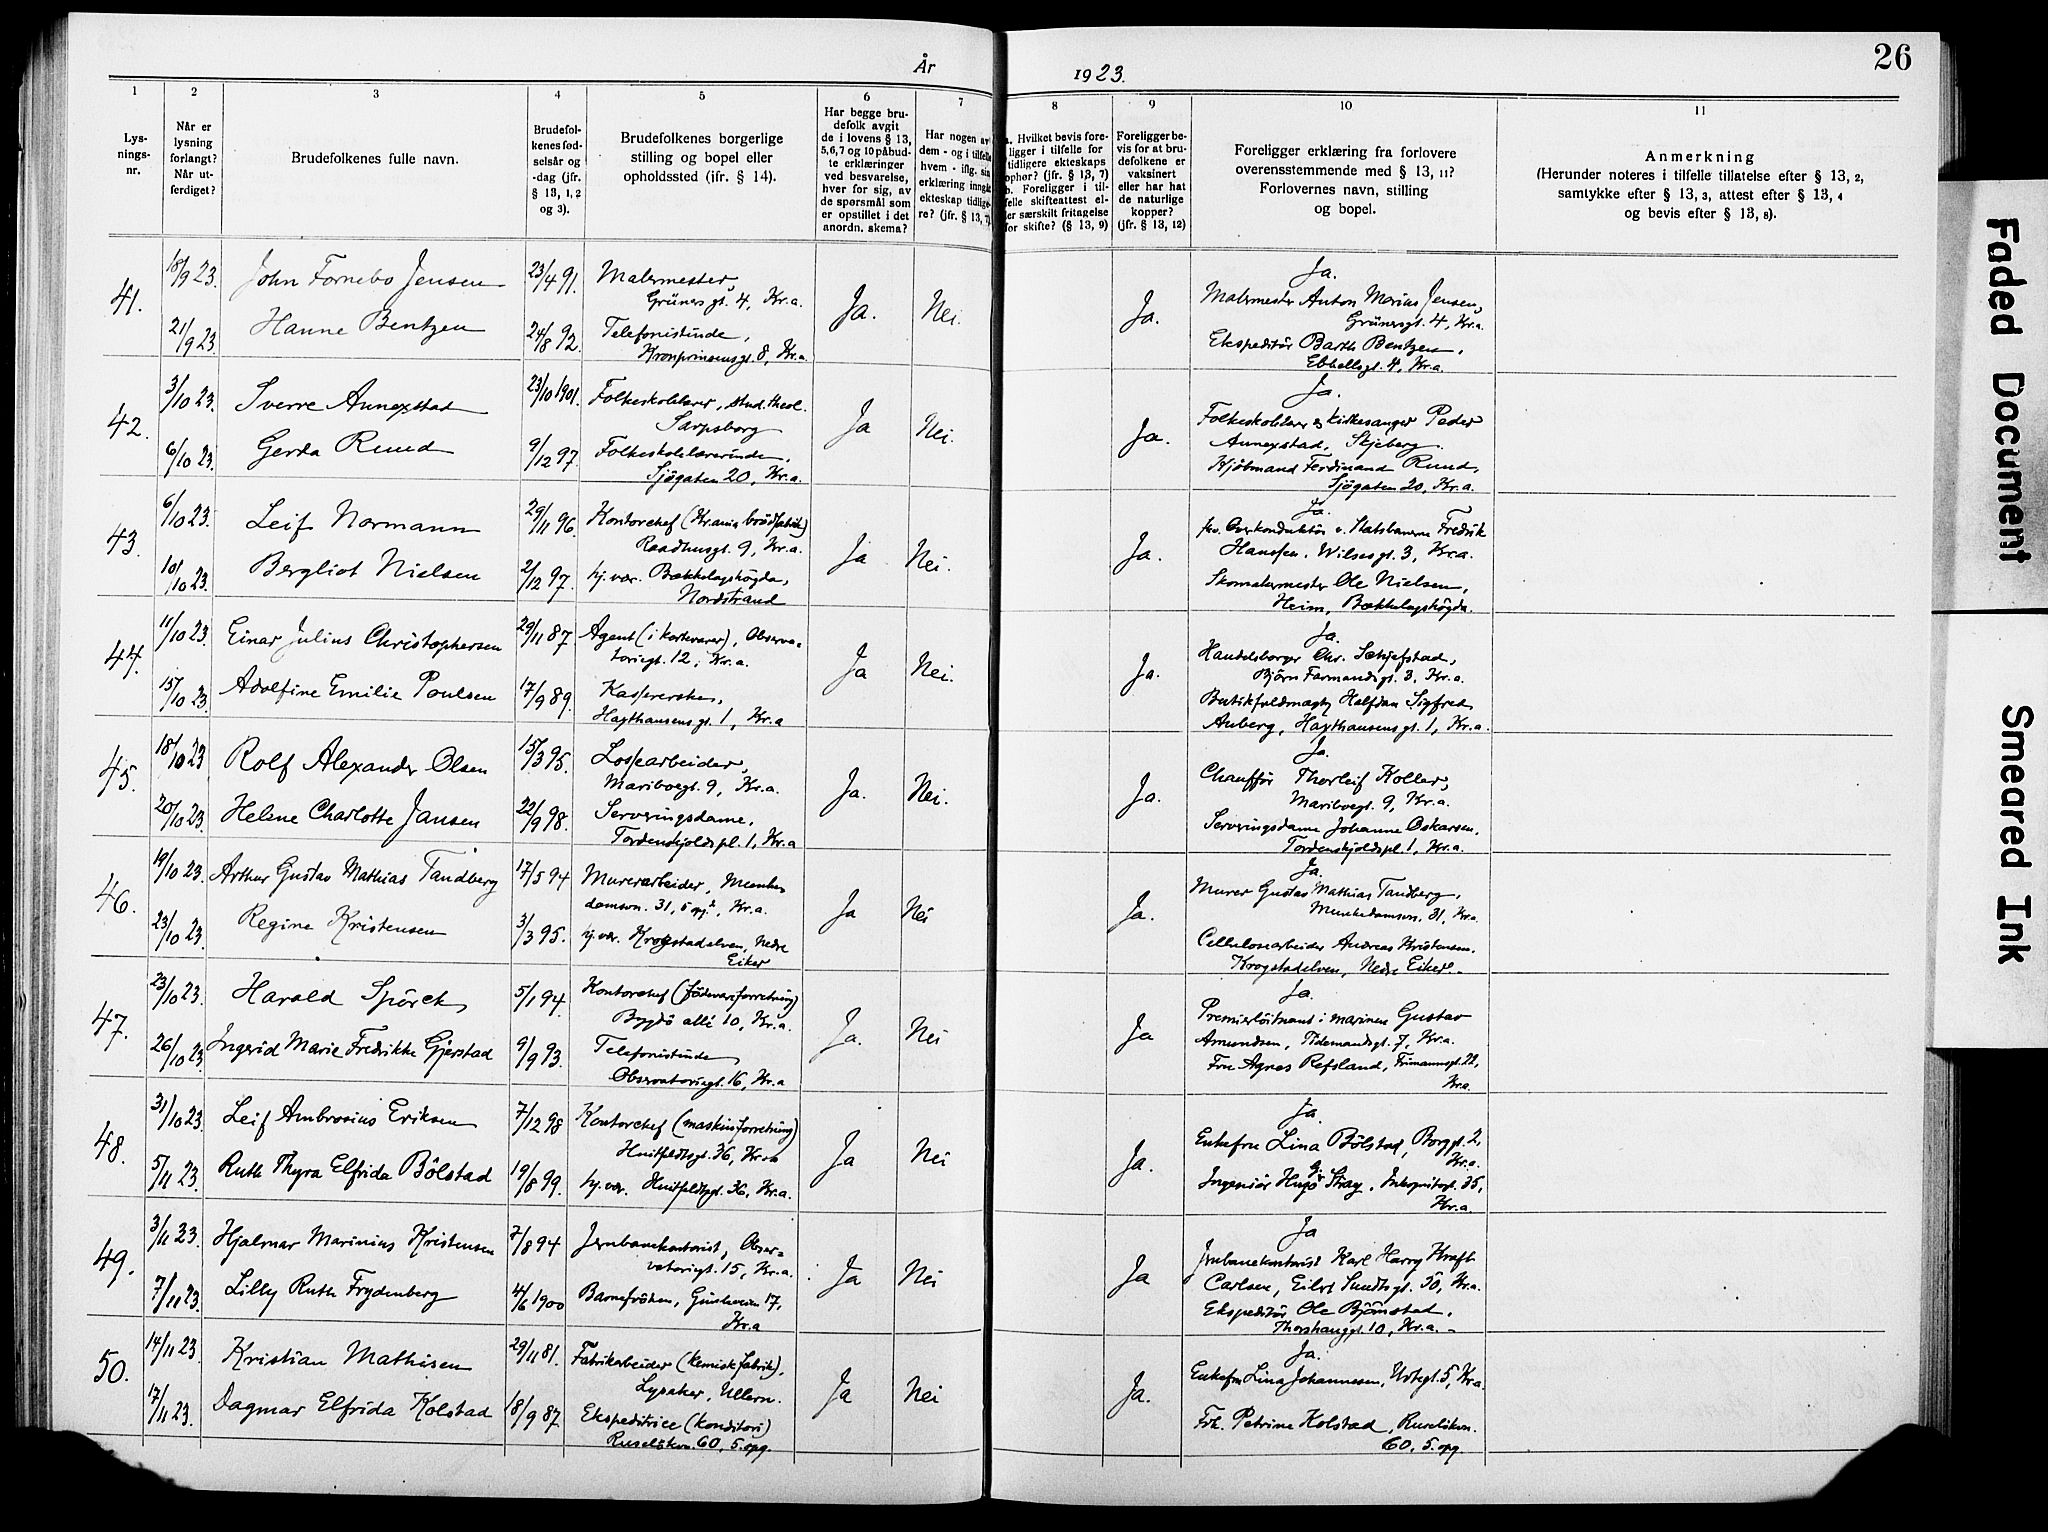 26
År 1923.
1 2 3 4 5 6 7 8 9 10 11
Lysningsnr.
Når er lysning forlangt? Når utferdiget?
Brudefolkenes fulle navn.
Brudefolkenes fødselsår og -dag (jfr. § 13, 1, 2 og 3).
Brudefolkenes borgerlige stilling og bopel eller opholdssted (ifr. § 14).
Har begge brudefolk avgit de i lovens § 13, 5, 6, 7 og 10 påbudte erklæringer ved besvarelse, hver for sig, av de spørsmål som er opstillet i det anordn. skema?
Har nogen av dem - og i tilfelle hvem - iflg. sin erklæring inngått ekteskap tidligere? (jfr. § 13, 7)
a. Hvilket bevis foreligger i tilfelle for tidligere ekteskaps ophør? (jfr. § 13, 7) b. Foreligger i tilfelle skifteattest eller særskilt fritagelse for skifte? (§ 13, 9)
Foreligger bevis for at brudefolkene er vaksinert eller har hat de naturlige kopper? (jfr. § 13, 12)
Foreligger erklæring fra forlovere overensstemmende med § 13, 11? Forlovernes navn, stilling og bopel.
Anmerkning
(Herunder noteres i tilfelle tillatelse efter § 13, 2, samtykke efter § 13, 3, attest efter § 13, 4 og bevis efter § 13, 8).
41.
18/9 23. John Fornebo Jensen 23/4 91. Malermester, Grünersgt. 4, Kr.a.
21/9 23 Hanne Bentzen 24/8 92. Telefonistinde, Kronprinsensgt. 8, Kr.a.
Ja. Nei. Ja.
Ja.
Malermester Anton Marius Jensen,
Grünersgt. 4, Kr.a.
Ekspeditør Barth Bentzen,
Ebbellsgt. 4, Kr.a.
42.
3/10 23. Sverre Annexstad 23/10 1901. Folkeskolelærer, stud. theol. Sarpsborg
6/10 23. Gerda Ruud 9/12 97. Folkeskolelærerinde, Sjøgaten 20, Kr.a.
Ja Nei. Ja.
Ja.
Folkeskolelærer og kirkesanger Peder
Annexstad, Skjeberg.
Kjøbmand Ferdinand Ruud,
Sjøgaten 20, Kr.a.
43.
6/10 23. Leif Normann 29/11 96. Kontorchef (Kr.ania brødfabrik) Raadhusgt. 9, Kr.a.
10/10 23. Bergliot Nielsen 2/12 97. hj. vær. Bækkelagshøgda, Nordstrand
Ja Nei. Ja.
Ja.
fhv. Overkonduktør v. Statsbanerne Fredrik
Hanssen, Wilsesgt. 3, Kr.a.
Skomakermester Ole Nielsen,
Heim, Bækkelagshøgda.
44.
11/10 23. Einar Julius Christophersen 29/11 87. Agent (i kortevarer), Observatoriegt. 12, Kr.a.
15/10 23. Adolfine Emilie Poulsen 17/9 89. Kassererske, Haxthausensgt. 1, Kr.a
Ja Nei. Ja.
Ja.
Handelsborger Chr. Schjefstad,
Bjørn Farmandsgt. 3, Kr.a.
Butikfuldmægtig Halfdan Sigfred
Auberg, Haxthausensgt. 1, Kr.a.
45.
18/10 23 Rolf Alexander Olsen 15/3 95. Lossearbeider, Mariboegt. 9, Kr.a.
20/10 23. Helene Charlotte Jansen 22/9 98. Serveringsdame, Tordenskjoldspl. 1, Kr.a
Ja. Nei. Ja.
Ja.
Chauffør Thorleif Koller,
Mariboegt. 9, Kr.a.
Serveringsdame Johanne Oskarsen,
Tordenskjoldspl. 1, Kr.a.
46.
19/10 23. Arthur Gustav Mathias Tandberg 17/5 94 Murerarbeider, Munkedamsvn. 31, 5 opg., Kr.a.
23/10 23. Regine Kristensen 3/3 95. hj. vær. Krogstadelven, Nedre Eiker
Ja Nei Ja.
Ja.
Murer Gustav Mathias Tandberg,
Munkedamsvn. 31, Kr.a.
Cellulosearbeider Andreas Kristensen.
Krogstadelven, Nedre Eiker.
47.
23/10 23. Harald Spörck 5/1 94. Kontorchef (fødevareforretning) Bygdø allé 10, Kr.a.
26/10 23 Ingerid Marie Fredrikke Gjerstad 9/9 93. Telefonistinde Observatoriegt. 16, Kr.a
Ja. Nei Ja
Ja.
Premierløitnant i marinen Gustav
Amundsen, Tidemandsgt. 7, Kr.a.
Fru Agnes Refsland, Frimannsgt. 22,
Kr.a.
48.
31/10 23. Leif Ambrosius Eriksen 7/12 98 Kontorchef (maskinforretning) Huitfeldtsgt. 36, Kr.a
5/11 23. Ruth Thyra Elfrida Bölstad 19/8 99. hj. vær. Huitfeldtsgt. 36, Kr.a.
Ja Nei Ja.
Ja.
Enkefru Lina Bölstad, Borggt. 2,
Kr.a.
Ingeniør Hugo Stray, Inkognitogt. 35,
Kr.a.
49.
3/11 23. Hjalmar Marinius Kristensen 7/8 94 Jernbanekontorist, Observatoriegt. 15, Kr.a.
7/11 23. Lilly Ruth Frydenberg 4/6 1900 Barnefrøken, 17, Kr.a
Ja Nei Ja
Ja
Jernbanekontorist Karl Harry Kraft
Carlsen, Eilert Sundtsgt. 30, Kr.a.
Ekspeditør Ole Bjørnstad,
Thorshauggt. 10, Kr.a.
50.
14/11 23. Kristian Mathisen 29/11 81. Fabrikarbeider (kemisk fabrik), Lysaker, Ullern.
17/11 23. Dagmar Elfrida Kolstad 18/9 87. Ekspeditrice (konditori) Ruseløkvn. 60, 5. opg.
Ja Nei Ja.
Ja.
Enkefru Lina Johannesen, Urtegt. 5, Kr.a.
Frk. Petrine Kolstad, Ruseløkvn.
60, 5. opg.
Faded Document
Smeared Ink